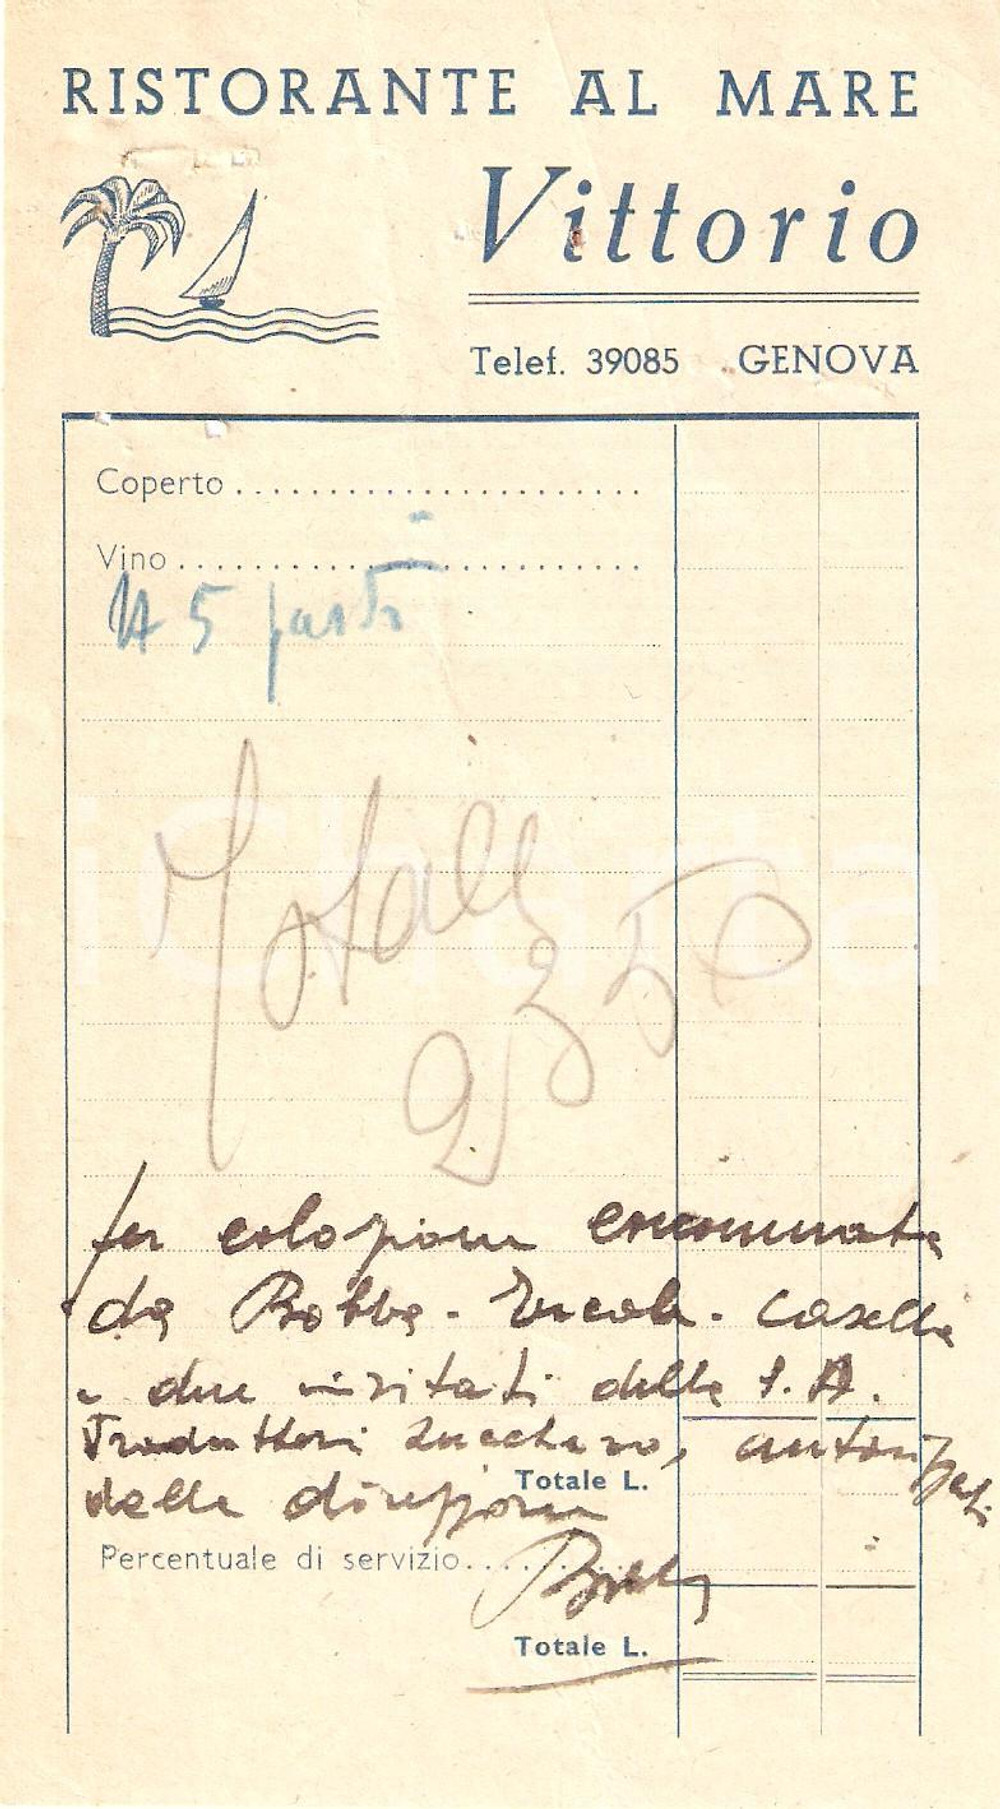 RISTORANTE AL MARE
Vittorio
Telef. 39085 GENOVA
Coperto
Vino
N 5 pasti
Totale
2350
per colazione consumata
da Bobba - - Casella
e due invitati della S.A.
Produttori Zucchero, autorizzati
dalla direzione
Totale L.
Percentuale di servizio
Totale L.